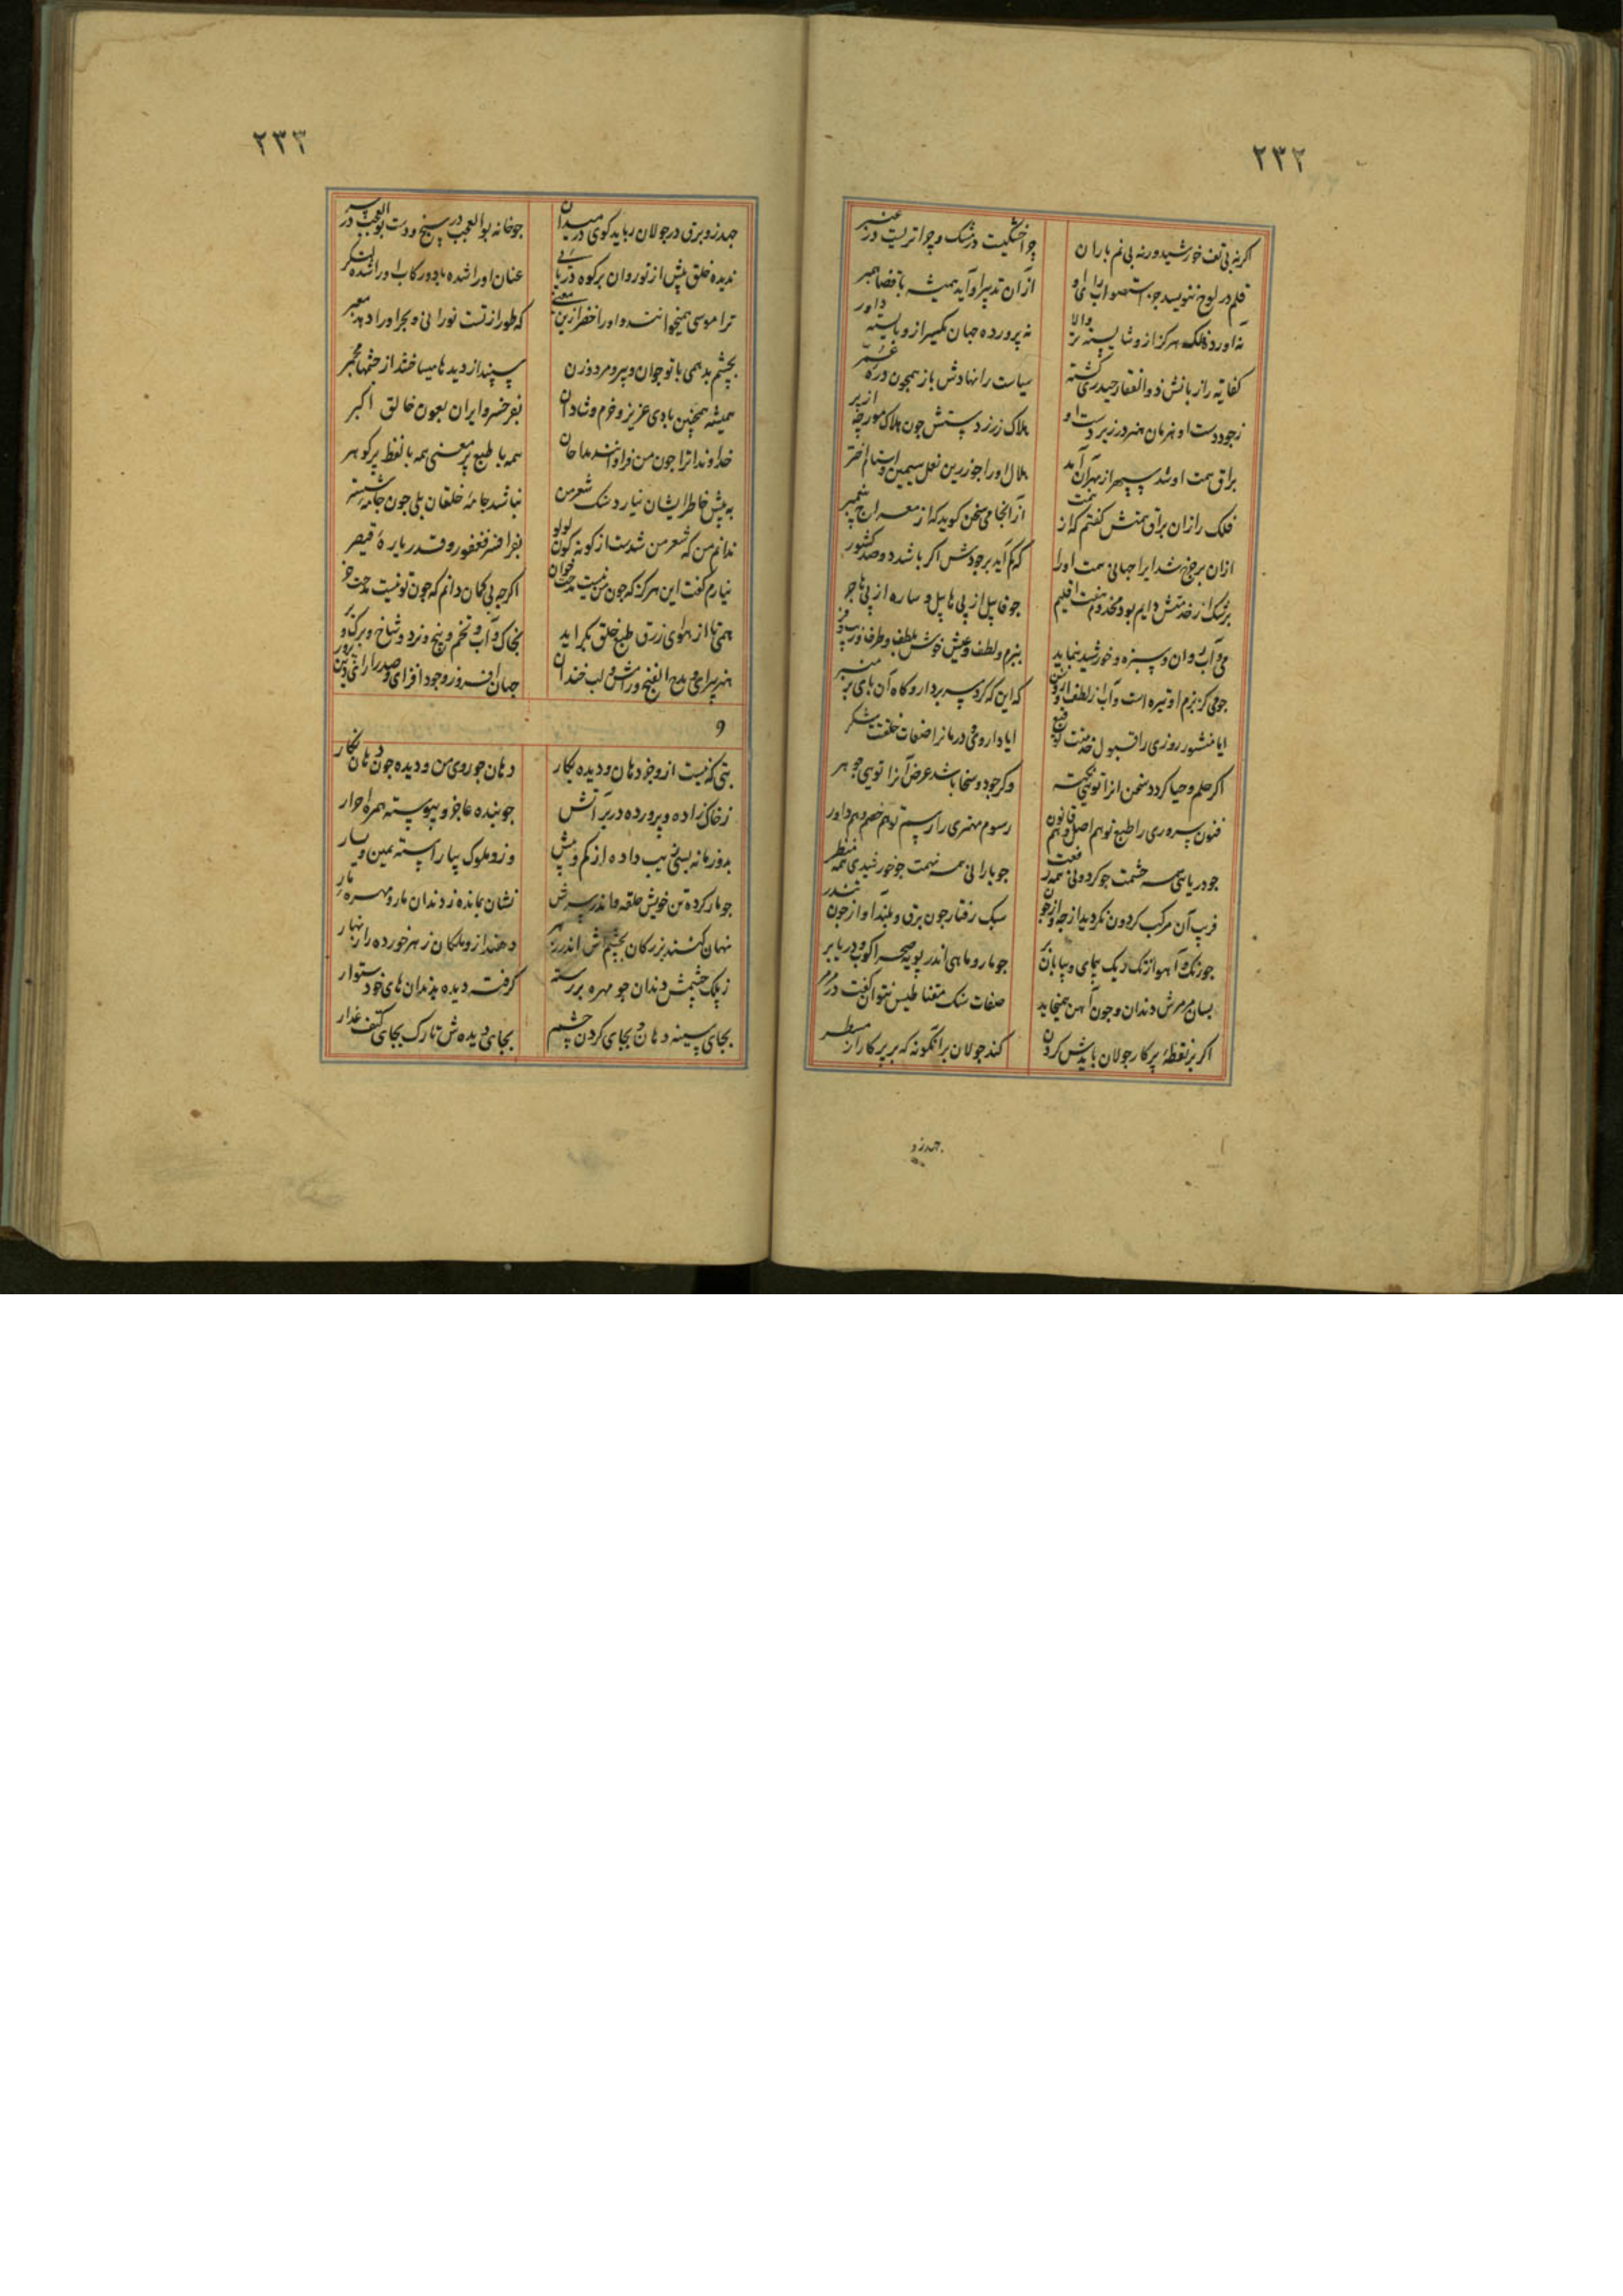 ۲۳۲
اکر نه بی تف خورشید ور نه بی نم باران چرا خشکیست در مشک و چرا تریست در عنبر
قلم در لوح ننویسد جز استصواب رای او از آن تدبیر او آید همیشه با قضا همبر
نه آورد فلک هرکز ازو شایسته تر والا نه پرورده جهان یکسر ازو بایسته داور
کفایه را زبانش ذوالفقار حیدری کشته سیاست را نهادش باز همچون دره عمر
ز جود دست او نهرمان هنر در زیر دست او هلاک زر ز دستش چون هلاک مورچه از پر
براق همت او شد سپهر از مهر آن آمد هلال او را چو زرین نعل سیمین استام اختر
فلک را زان براق همتش کفتم که از همت از آنجا می سخن کوید که از معراج پیغمبر
ازان بر چرخ شد ایرا جهانی همت او را که کم آید بر جودش اکر باشد دو صد کشور
برشک از خدمتش دایم بود مخدوم هفت اقلیم چو قابیل از پی هابیل و ساره از پی هاجر
می و آب روان و سبزه و خورشید بنماید ببزم و لطف و عیش خوش بلطف و ظرف و زیب و فر
چو می کز بزم او تیره است و آب از لطف او که این که کرد سر بردار و کاه آن پای بر منبر
ایا منشور روزی را قبول خدمتت توقیع ایا داروی درمان را صفات خلقت شکر
اکر حلم و حیا کردد سخن انرا تویی وکر جود و سخا باشد عرض آنرا تویی جوهر
فنون سروری را طبع تو هم اصل و هم قانون رسوم مهتری را رسم تو هم خصم و هم داور
چو دریایی همه حشمت چو کردونی همه رفعت چو بارانی همه نهمت چو خورشیدی همه منظر
قریب آن مرکب کردون نکردید از سبک رفتار چون برق و بلند آواز چون تندر
چو رنک و آهو از تک ریک پیمای و بیابان بر چو مار و ماهی اندر پویه صحرا کوب و دریا بر
بسان مرمرش دندان و چون آهن همیخاید صفات سنک مغناطیس نتوان کفت در مرمر
اکر بر نقطهٔ پرکار جولان بایدش کردن کند جولان برانکونه که بر پرکار از مسطر
جهد زو
۲۳۳
جهد زو برق در جولان رباید کوی در میدان چو خانه بوالعجب در سیخ و دست بوالعجب در سر
ندیده خلق پیش از تو روان بر کوه دریایی عنان او را شده باد و رکاب او را شده لنکر
ترا موسی همیخوانند و او را خضر ازین معنی که طور از تست نورانی و بحر او را دهد معبر
بچشم بد همی با تو جوان و پیر و مرد و زن سپند از دیدها میساختند از چشمها مجمر
همیشه همچنین بادی عزیز و خرم و شادان بفر خسرو ایران بعون خالق اکبر
خداوندا ترا چون من فراوانند مداحان همه با طبع پر معنی همه با لفظ پر کوهر
به پیش خاطر ایشان نیارد سنک شعر من نباشد جامهٔ خلقان بلی چون جامهٔ شستر
ندانم من که شعر من شدست از کونه کون لولو بفر افسر فغفور و قدر یارهٔ قیصر
نیارم کفت این هرکز که چون من نیست مدحت خوان اکرچه بی کمان دانم که چون تو نیست مدحت خر
همی تا از هوای زرق طبع خلق بکراید بخاک و آب و تخم و بیخ و نرد و شاخ و برک و بر
هنر پیرای و مدح الفنج و رامش و لب خندان جهان افروز و جود افزای و صدر ارای و دین پرور
و
بتی که نیست از وجز دهان و دیده بکار دهان چو روی من و دیده چون دهان نکار
ز خاک زاده و پرورده در بر آتش چو بنده عاجز و پیوسته همره احرار
بدو زمانه بسی زیب داده از کم و بیش وزو ملوک بیاراسته یمین و یسار
چو مار کرده تن خویش حلقه و اندر سرش نشان بمانده ز دندان مار و مهره مار
نهان کنند بزرکان بچشمش اندر زهر دهند ازو ملکان زهر خورده را زنهار
ز پلک چشمش دندان چو مهره بر رسته کرفته دیده بدندان های خود ستوار
بجای سینه دهان و بجای کردن چشم بجای دیده ش تارک بجای کتف عذار